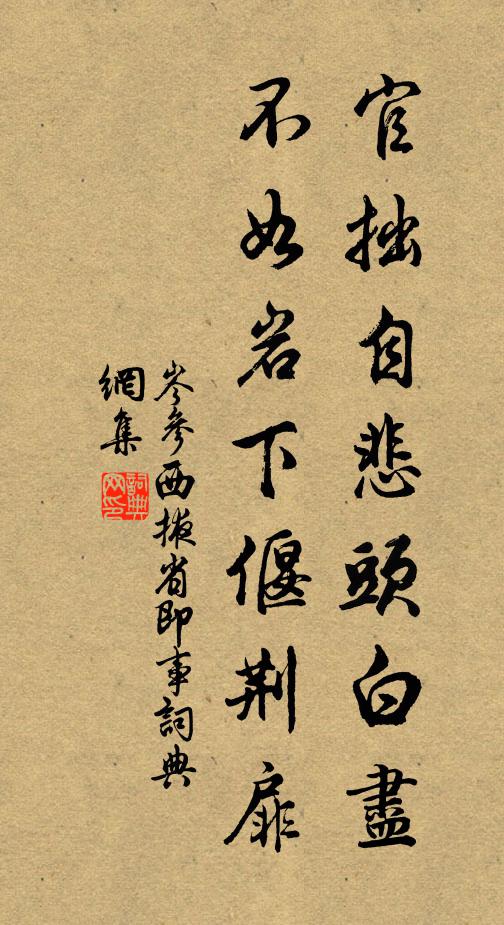 官拙自悲頭白盡
不如岩下偃荆扉
岑參西掖省即事詞典
網集
詞典网印